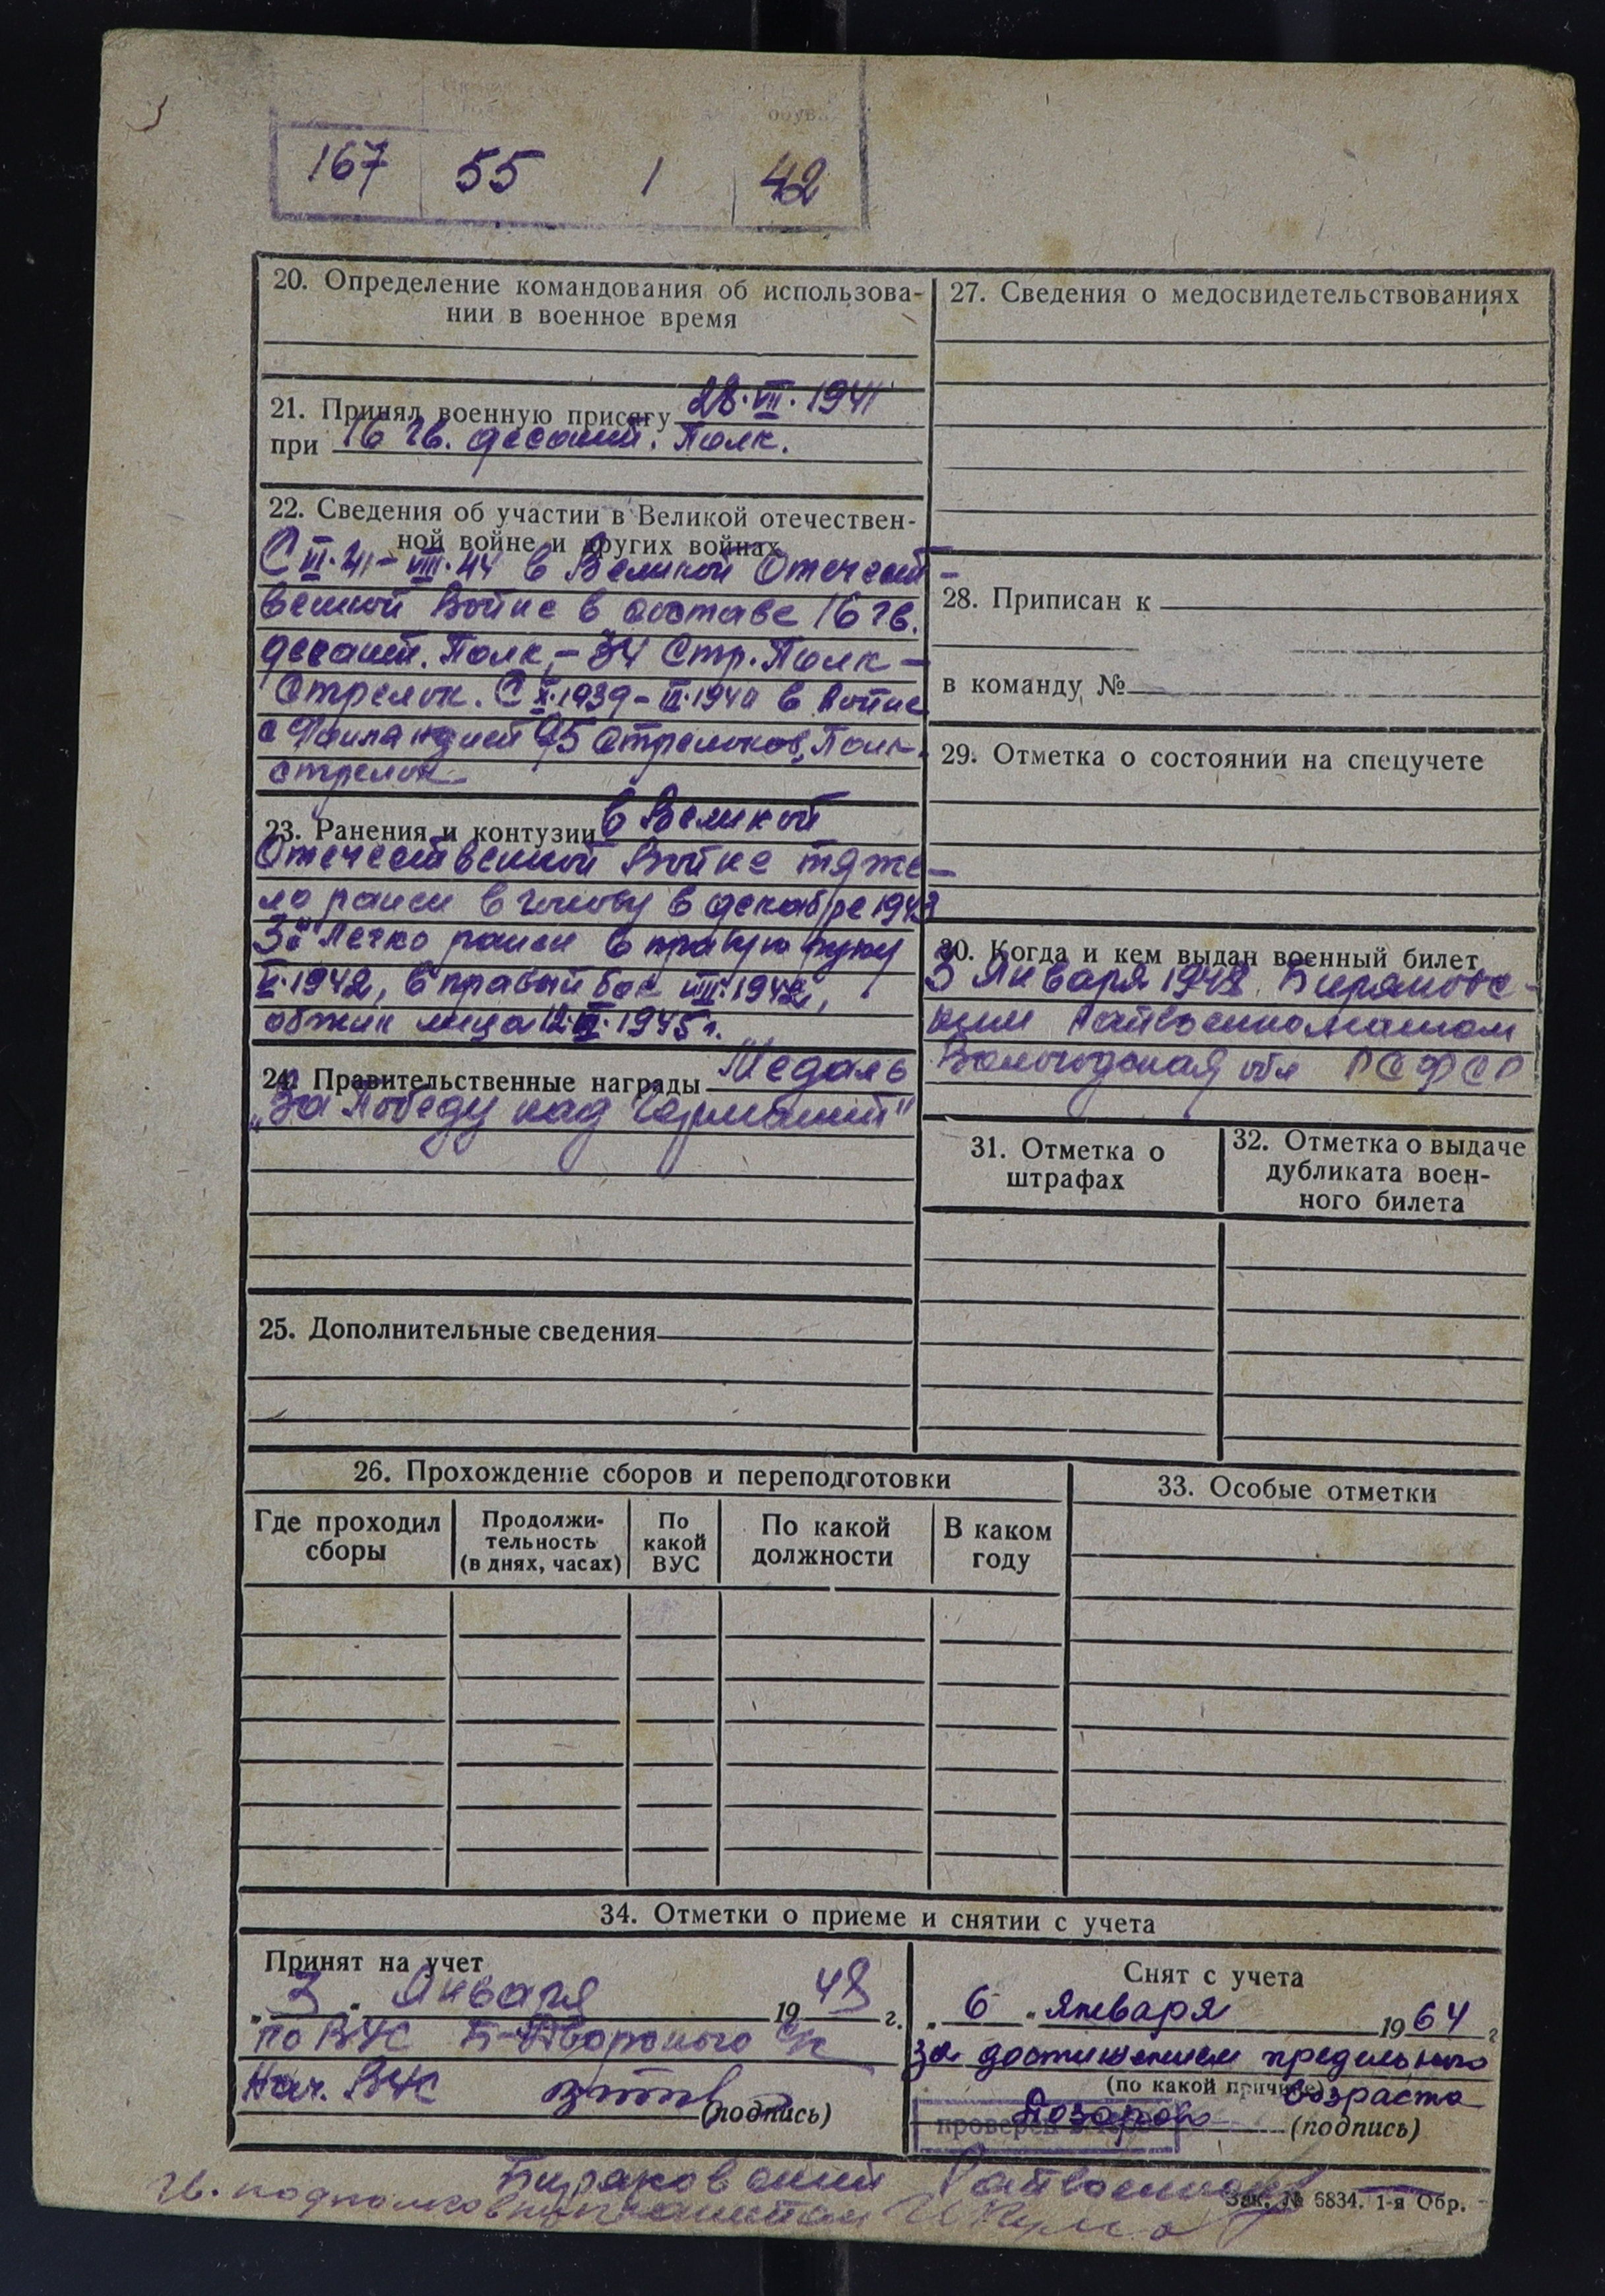 обув.
167 55 1 42
20. Определение командования об использова-
нии в военное время
21. Принял военную присягу 28.VII.1941
при 16 гв. десант. Полк.
22. Сведения об участии в Великой отечествен-
ной войне и других войнах
С VI.41-VIII.44 в Великой Отечест-
венной Войне в составе 16 гв.
десант. Полк,- 34 Стр. Полк-
Стрелок. С X.1939-III.1940 в войне
с Финляндией 95 стрелков. Полк-
стрелок
23. Ранения и контузии в Великой
Отечественной Войне тяже-
ло ранен в голову в декабре 1943
Легко ранен в правую руку
V.1942, в правый бок VIII.1942,
обжиг лица 1945 г.
24. Правительственные награды Медаль
„За Победу над Германией"
25. Дополнительные сведения
26. Прохождение сборов и переподготовки
Где проходил сборы
Продолжи-
тельность
(в днях, часах)
По какой ВУС
По какой должности
В каком году
27. Сведения о медосвидетельствованиях
28. Приписан к
в команду №
29. Отметка о состоянии на спецучете
30. Когда и кем выдан военный билет
3 Января 1948 Биряковс-
ким Райвоенкоматом
Вологодская обл РСФСР
31. Отметка о
штрафах
32. Отметка о выдаче
дубликата воен-
ного билета
33. Особые отметки
34. Отметки о приеме и снятии с учета
Принят на учет
„3" Января 1948 г.
по ВУС
Нач. ВУС (подпись)
Снят с учета
„6" января 1964 г
за достижением предельного
(по какой причине) возраста
проверен (подпись)
Биряковский Райвоенком
Зак. № 6834. 1-я Обр.
гв. подполковник